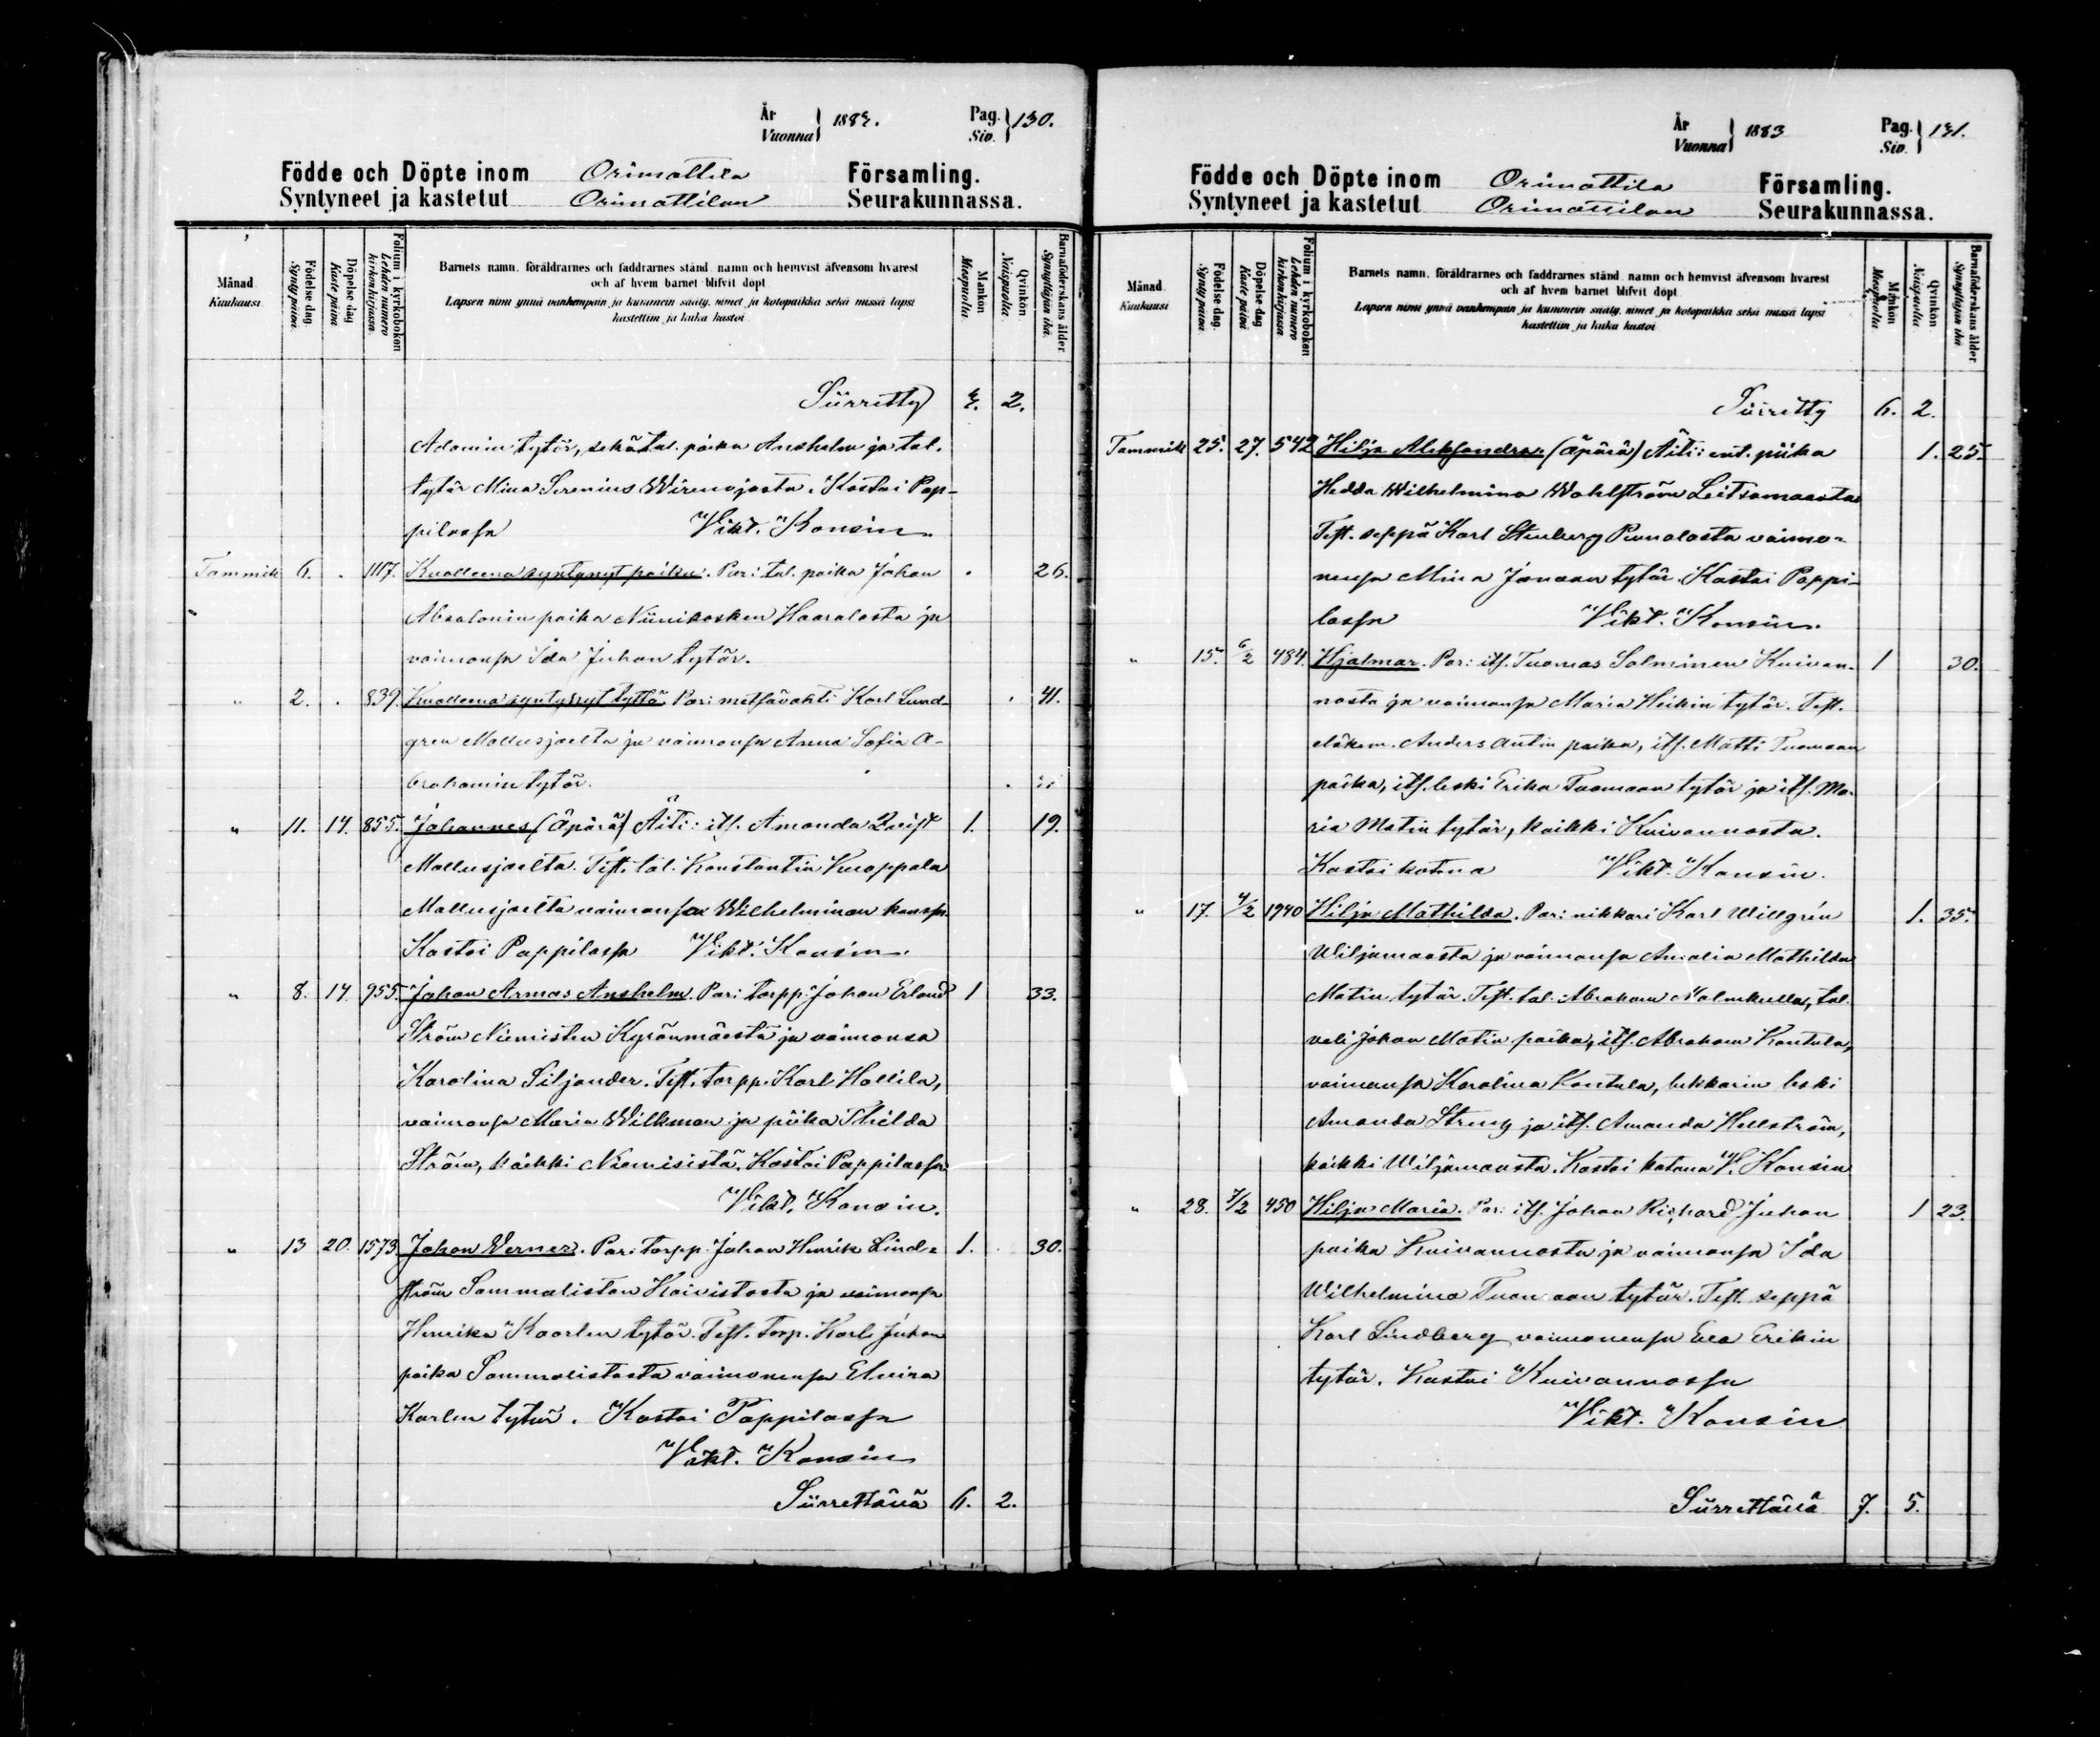 År
Vuonna } 1883. Pag.
Siv. } 130.
Födde och Döpte inom Orimattila Församling.
Syntyneet ja kastetut Orimattilan Seurakunnassa.
Månad Kuukausi
Födelse dag. Synty päivä.
Döpelse dag Kaste päivä
Folium i kyrkoboken Lehden numero kirkonkirjassa.
Barnets namn, föräldrarnes och faddrarnes stånd, namn och hemvist äfvensom hvarest
och af hvem barnet blifvit döpt
Lapsen nimi ynnä vanhempain ja kummein sääty, nimet ja kotopaikka sekä missä lapsi
kastettiin ja kuka kastoi
Mankön Miespuolia.
Qvinkön Naispuolia.
Barnaföderskans ålder Synnyttäjän ikä.
Siirretty 4. 2.
Adamin tytär, sekä tal. poika Anshelm ja tal.
tytär Mina Serenius Wirenojasta. Kastoi Pap-
pilassa Vikt. Konsin.
Tammik 6. . 1117. Kuolleena syntynyt poika. Par: tal. poika Johan . 26.
Absalonin poika Niinikosken Haaralasta ja
vaimonsa Ida Juhan tytär.
" 2. . 839. Kuolleena syntynyt tyttö. Par: metsävahti Karl Lund- . 41.
gren Mallusjoelta ja vaimonsa Anna Sofia A-
brahamin tytär.
" 11. 14. 855. Johannes (Äpärä) Äiti: its. Amanda Qvist 1. 19.
Mallusjoelta. Test. tal. Konstantin Knappala
Mallusjoelta vaimonsa Wilhelminan kanssa
Kastoi Pappilassa Vikt. Konsin.
" 8. 14. 955. Johan Armas Anshelm. Par: torpp. Johan Erland 1 33.
Ström Niemisten Kyrönmäestä ja vaimonsa
Karolina Siljander. Test. torpp. Karl Hollila,
vaimonsa Maria Wilkman ja piika Thilda
Ström, kaikki Niemisistä. Kastoi Pappilassa
Vikt. Konsin.
" 13 20. 1573 Johan Werner. Par: torpp. Johan Henrik Lind- 1. 30.
ström Sammaliston Koivistosta ja vaimonsa
Henrika Kaarlen tytär. Test. torp. Karl Juhan
poika Sammalistosta vaimonensa Elvira
Karlen tytär. Kastoi Pappilassa
Vikt. Konsin
Siirrettävä 6. 2.
År
Vuonna } 1883 Pag.
Siv. } 131.
Födde och Döpte inom Orimattila Församling.
Syntyneet ja kastetut Orimattilan Seurakunnassa.
Månad Kuukausi
Födelse dag. Synty päivä.
Döpelse dag Kaste päivä
Folium i kyrkoboken Lehden numero kirkonkirjassa
Barnets namn, föräldrarnes och faddrarnes stånd, namn och hemvist äfvensom hvarest
och af hvem barnet blifvit döpt
Lapsen nimi ynnä vanhempain ja kummein sääty, nimet ja kotopaikka sekä missä lapsi
kastettiin ja kuka kastoi
Mankön Miespuolia
Qvinkön Naispuolia
Barnaföderskans ålder Synnyttäjän ikä
Siirretty 6. 2.
Tammik 25. 27. 542 Hilja Aleksandra (äpärä) Äiti: ent. piika 1. 25.
Hedda Wilhelmina Wahlström Leitsamaasta
Test. seppä Karl Stenberg Pennalasta vaimo-
nensa Mina Joonaan tytär. Kastoi Pappi-
lassa Vikt. Konsin.
" 15. 6/2 484. Hjalmar. Par: its. Tuomas Salminen Kuivan- 1 30.
nosta ja vaimonsa Maria Heikin tytär. Test.
eläkem. Anders Antin poika, its. Matti Tuomaan
poika, its. leski Erika Tuomaan tytär ja its. Ma-
ria Matin tytär, kaikki Kuivannosta.
Kastoi kotona Vikt. Konsin.
" 17. 4/2 1940 Hilja Mathilda. Par: nikkari Karl Willgrén 1. 35.
Wiljamaasta ja vaimonsa Amalia Mathilda
Matin tytär. Test. tal. Abraham Malmkulla, tal.
veli Johan Matin poika, its. Abraham Kantola,
vaimonsa Karolina Kantola, lukkarin leski
Amanda Streng ja its. Amanda Hellström,
kaikki Wiljamaasta. Kastoi kotona V. Konsin
" 28. 7/2 450 Hilja Maria. Par: its. Johan Richard Juhan 1 23.
poika Kuivannosta ja vaimonsa Ida
Wilhelmina Tuomaan tytär. Test. seppä
Karl Lindberg vaimonensa Eva Erikin
tytär. Kastoi Kuivannossa
Vikt. Konsin
Siirrettävä 7. 5.